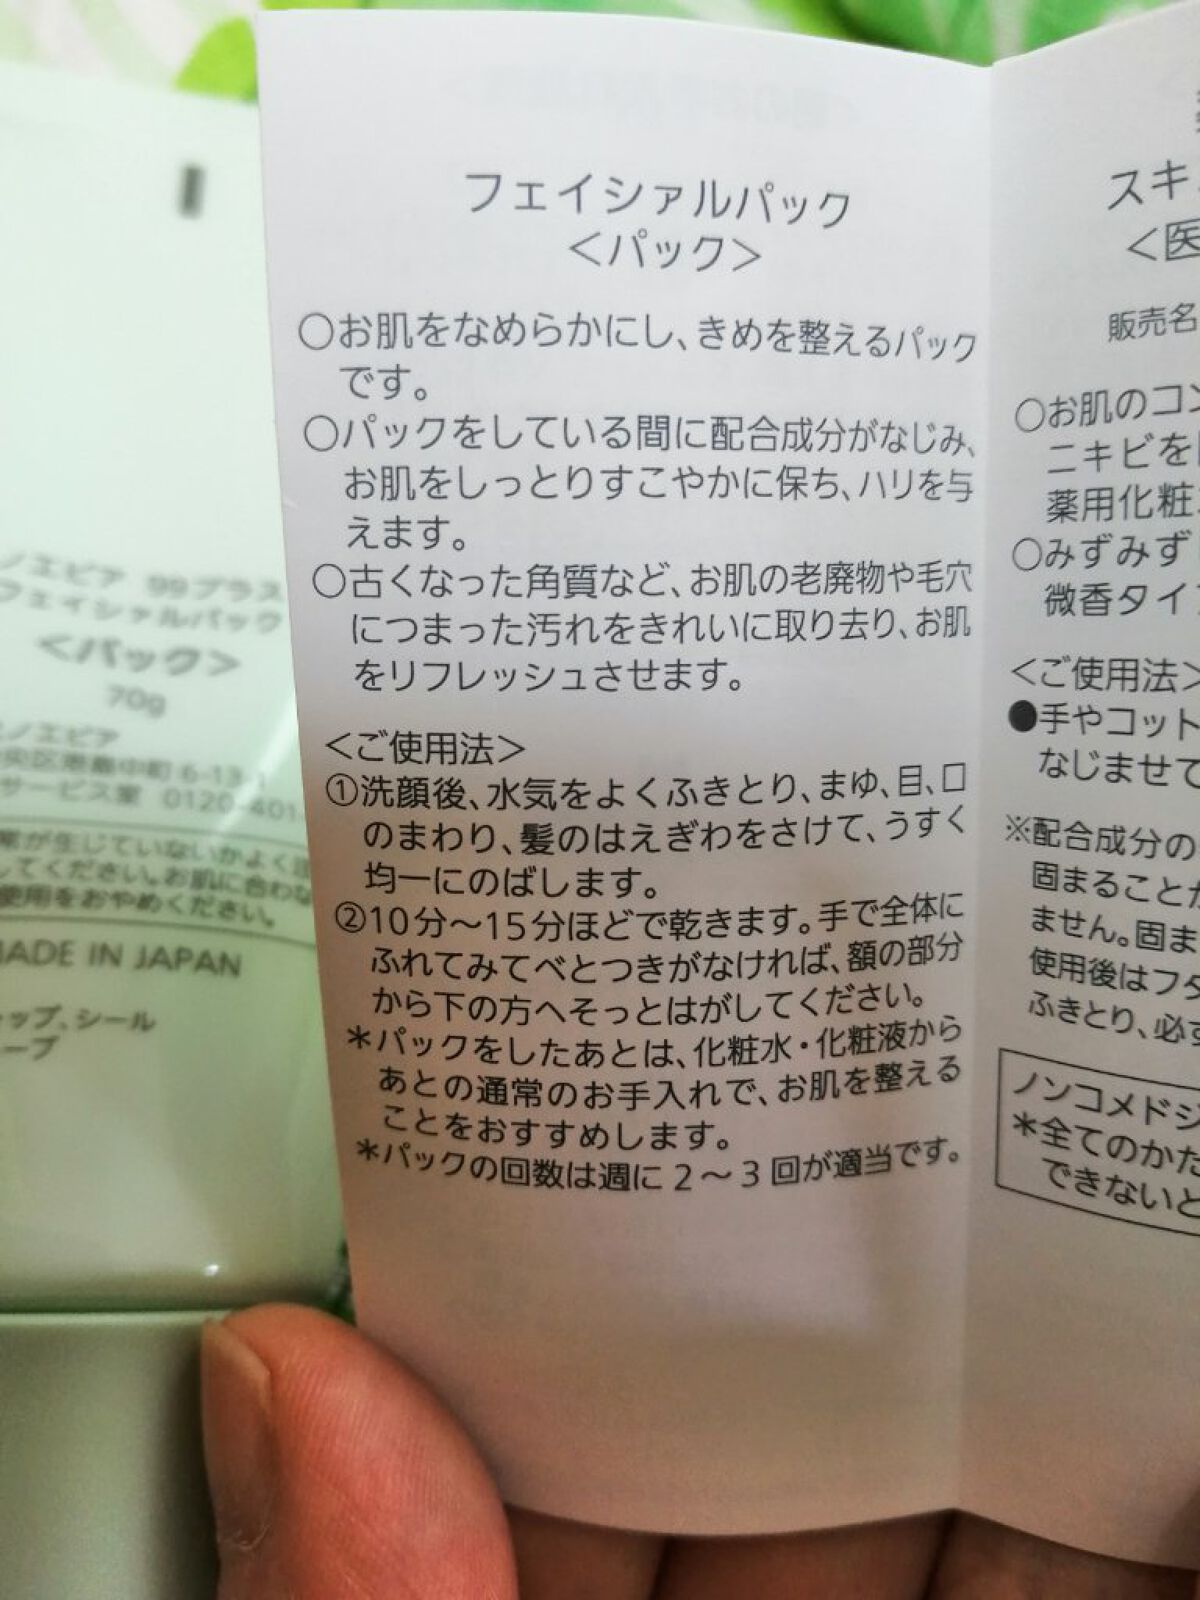 フェイシャルパック
<パック>
○お肌をなめらかにし、きめを整えるパック
です。
○パックをしている間に配合成分がなじみ、
お肌をしっとりすこやかに保ち、ハリを与
えます。
○古くなった角質など、お肌の老廃物や毛穴
につまった汚れをきれいに取り去り、お肌
をリフレッシュさせます。
<ご使用法>
①洗顔後、水気をよくふきとり、まゆ、目、口
のまわり、髪のはえぎわをさけて、うすく
均一にのばします。
②10分～15分ほどで乾きます。手で全体に
ふれてみてべとつきがなければ、額の部分
から下の方へそっとはがしてください。
*パックをしたあとは、化粧水・化粧液から
あとの通常のお手入れで、お肌を整える
ことをおすすめします。
*パックの回数は週に2～3回が適当です。
スキ
<医
販売名
○お肌のコン
ニキビを
薬用化粧
○みずみず
微香タイ
<ご使用法>
●手やコット
なじませて
※配合成分の
固まること
ません。固ま
使用後はフタ
ふきとり、必ず
ノンコメドジ
*全てのかた
できないと
ノエビア 99プラス
フェイシャルパック
<パック>
70g
ノエビア
央区港島中町6-13-1
サービス室 0120-401-
常が生じていないかよく注
してください。お肌に合わな
使用をおやめください。
MADE IN JAPAN
ャップ、シール
ューブ